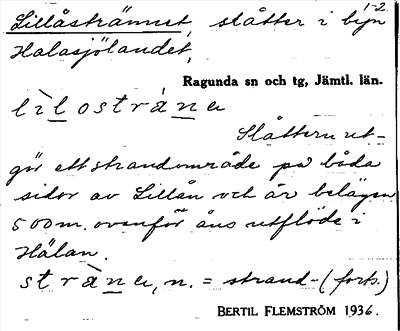 1-2.
Lillåsträmnet, slåtter i byn
Halasjölandet,
Ragunda sn och tg, Jämtl. län.
Slåttern ut-
gör ett strandområde på båda
sidor av Lillån och är belägen
500 m. ovanför åns utflöde i
Hålan.
n. = strand- (forts.)
BERTIL FLEMSTRÖM 1936.